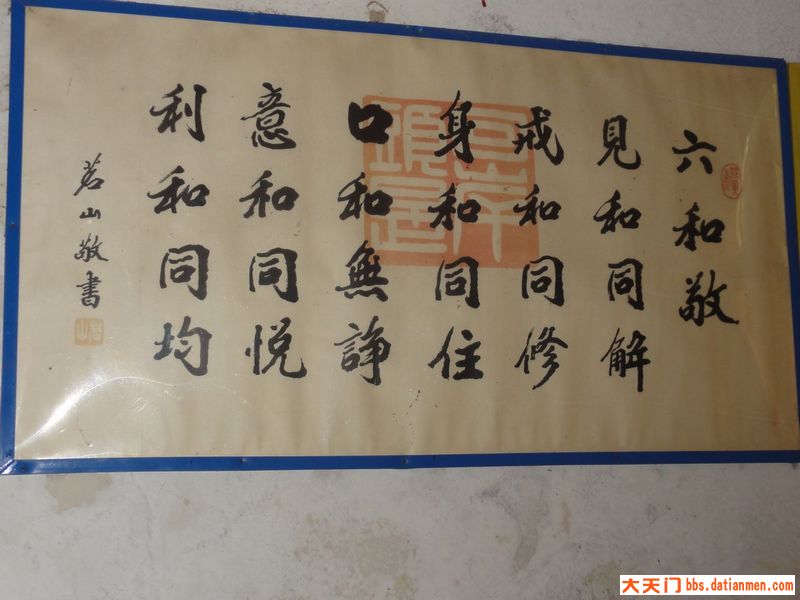 六和敬
見和同解
戒和同修
身和同住
口和無諍
意和同悅
利和同均
茗山敬書
茗山
大天门 bbs.datianmen.com